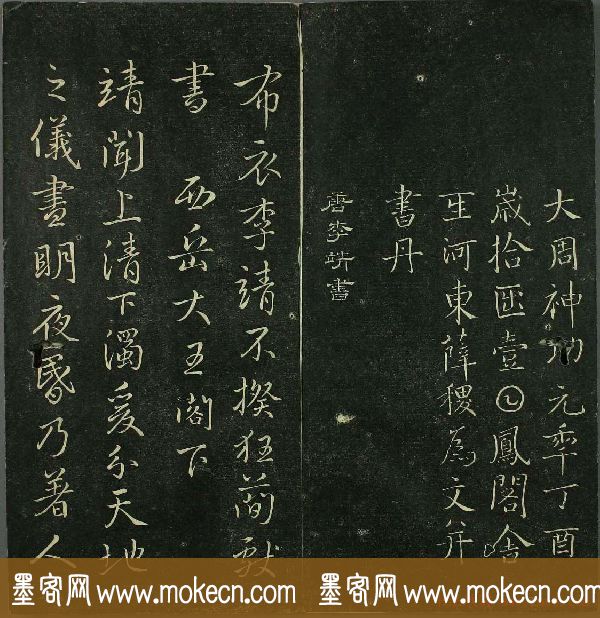 大周神功元秊丁酉
歲拾𠥱壹𡆠鳳閣舍
𤯔河東薛稷為文并
書丹
唐李靖書
布衣李靖不揆狂簡獻
書 西岳大王閣下
靖聞上清下濁爰分天地
之儀晝明夜昬乃著人
墨客网 www.mokecn.com 墨客网 www.mokecn.com